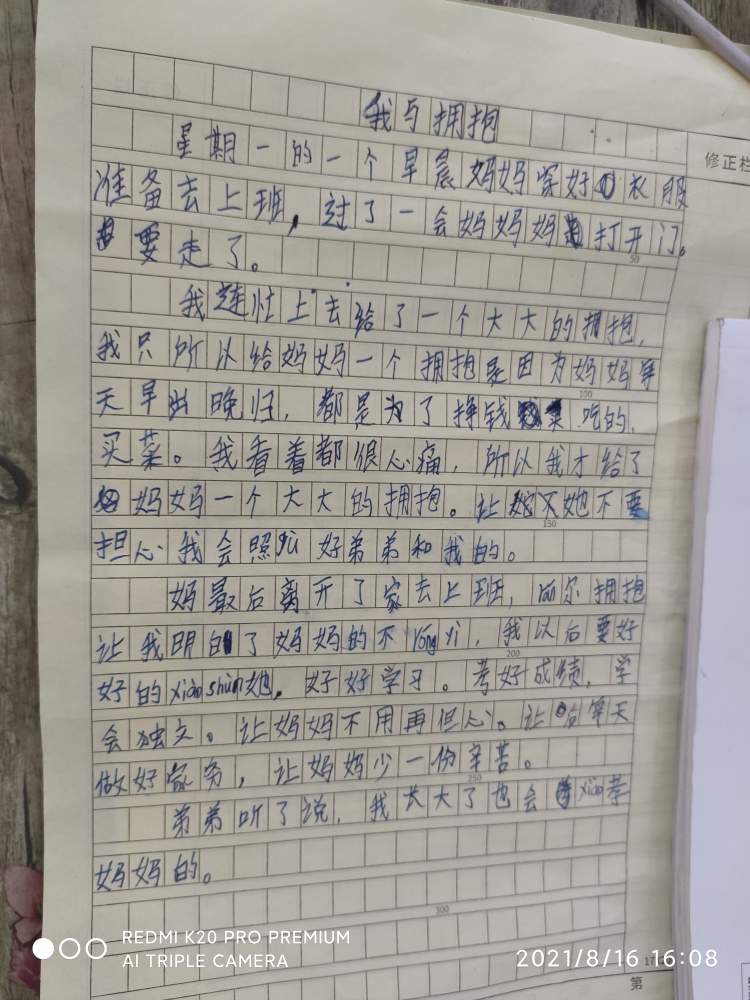 我与拥抱
修正栏
星期一的一个早晨妈妈穿好衣服
准备去上班，过了一会妈妈妈打开门。
要走了。
50
我连忙上去给了一个大大的拥抱，
我只所以给妈妈一个拥抱是因为妈妈每
100
天早出晚归，都是为了挣钱 吃的，
买菜。我看着都很心痛，所以我才给了
妈妈一个大大的拥抱。让 她不要
150
担心我会照gù好弟弟和我的。
妈最后离开了家去上班，而尔拥抱
让我明白了妈妈的不yóng yì，我以后要好
200
好的xiào shùn她，好好学习。考好成绩，学
会独立。让妈妈不用再但心。让 每天
做好家务，让妈妈少一份辛苦。
250
弟弟听了说，我长大了也会 xiào
妈妈的。
300
第
REDMI K20 PRO PREMIUM
AI TRIPLE CAMERA
2021/8/16 16:08